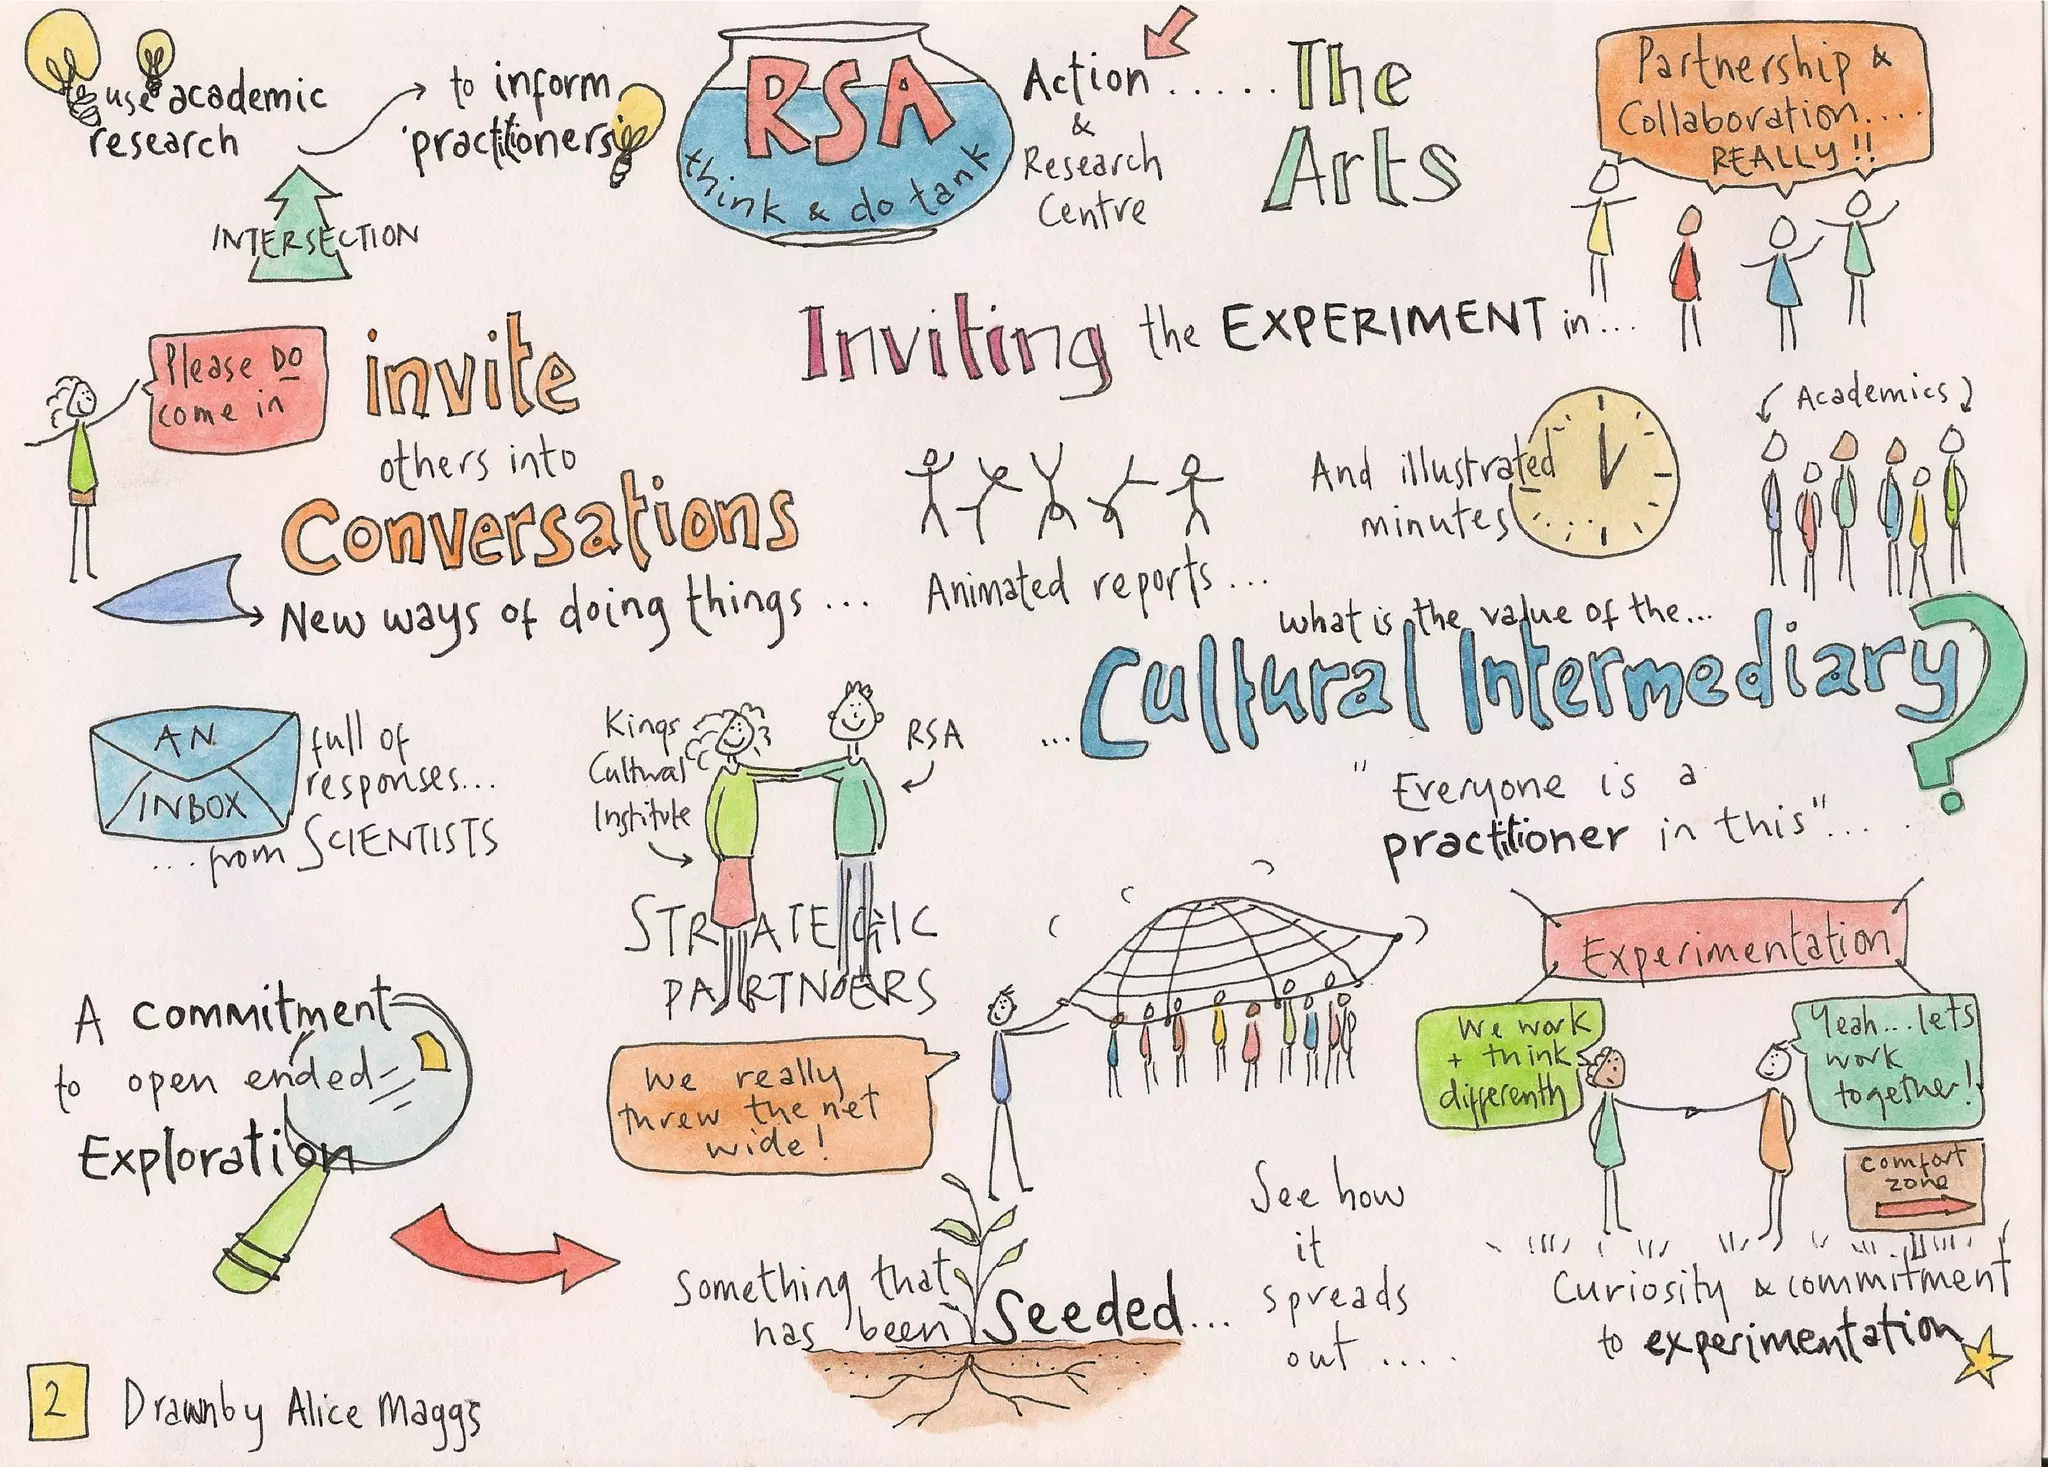 use academic
research
to inform
'practitioners'
INTERSECTION
RSA
think & do tank
Action .....
&
Research
Centre
The
Arts
Partnership &
Collaboration....
REALLY!!
Please DO
come in
invite
others into
Conversations
New ways of doing things ...
Inviting the EXPERIMENT in...
Animated reports ...
And illustrated
minutes
Academics
what is the value of the...
... Cultural Intermediary ?
"Everyone is a
practitioner in this".....
AN
INBOX
full of
responses...
....from SCIENTISTS
Kings
Cultural
Institute
RSA
STRATEGIC
PARTNERS
A commitment
to open ended
Exploration
we really
threw the net
wide!
Something that
has been Seeded...
See how
it
spreads
out .....
Experimentation
We work
+ think
differently
Yeah...lets
work
together!
comfort
zone
Curiosity & commitment
to experimentation
2
Drawn by Alice Maggs